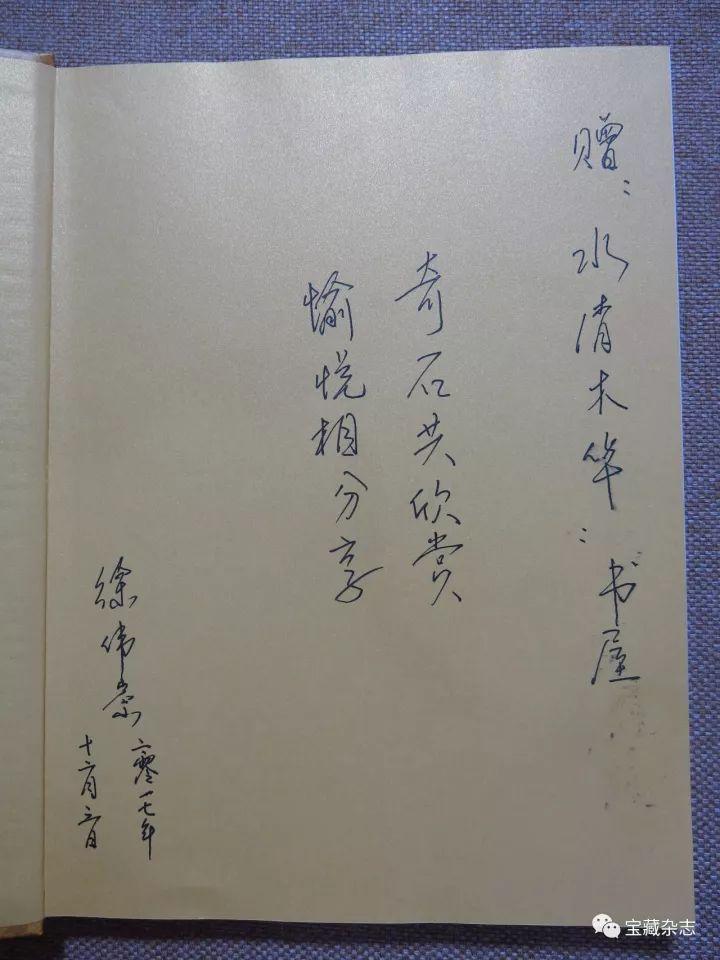 赠："水清木华"书屋
奇石共欣赏
愉悦相分享
徐伟崇
二零一七年
十二月三日
宝藏杂志